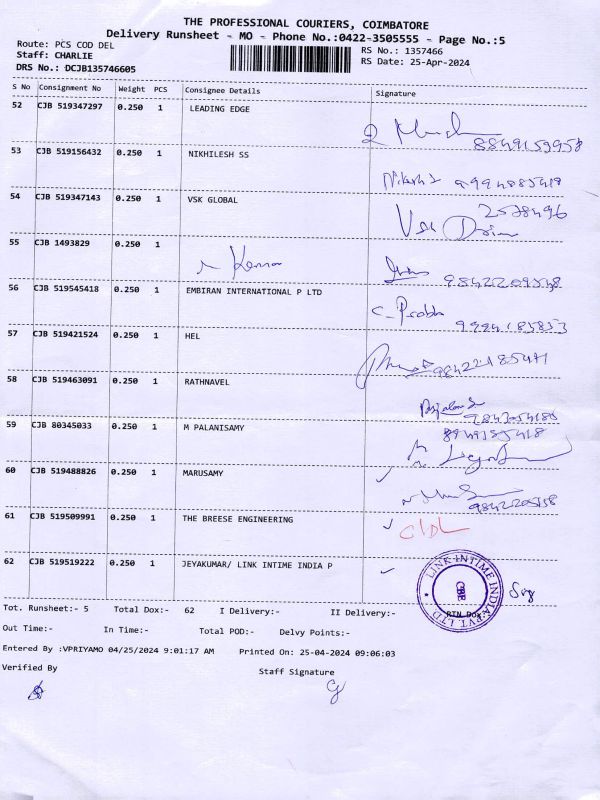 THE PROFESSIONAL COURIERS, COIMBATORE
Delivery Runsheet - MO - Phone No.:0422-3505555 - Page No.:5
Route: PCS COD DEL RS No.: 1357466
Staff: CHARLIE RS Date: 25-Apr-2024
DRS No.: DCJB135746605
S No Consignment No Weight PCS Consignee Details Signature
52 CJB 519347297 0.250 1 LEADING EDGE
8849159958
53 CJB 519156432 0.250 1 NIKHILESH SS
54 CJB 519347143 0.250 1 VSK GLOBAL
2578496
VSK
55 CJB 1493829 0.250 1
56 CJB 519545418 0.250 1 EMBIRAN INTERNATIONAL P LTD
C. Prabh
57 CJB 519421524 0.250 1 HEL
58 CJB 519463091 0.250 1 RATHNAVEL
59 CJB 80345033 0.250 1 M PALANISAMY
60 CJB 519488826 0.250 1 MARUSAMY
61 CJB 519509991 0.250 1 THE BREESE ENGINEERING
62 CJB 519519222 0.250 1 JEYAKUMAR/ LINK INTIME INDIA P
LINK INTIME INDIA PVT. LTD
CBE
Tot. Runsheet:- 5 Total Dox:- 62 I Delivery:- II Delivery:- RTN Dox:-
Out Time:- In Time:- Total POD:- Delvy Points:-
Entered By :VPRIYAMO 04/25/2024 9:01:17 AM Printed On: 25-04-2024 09:06:03
Verified By Staff Signature